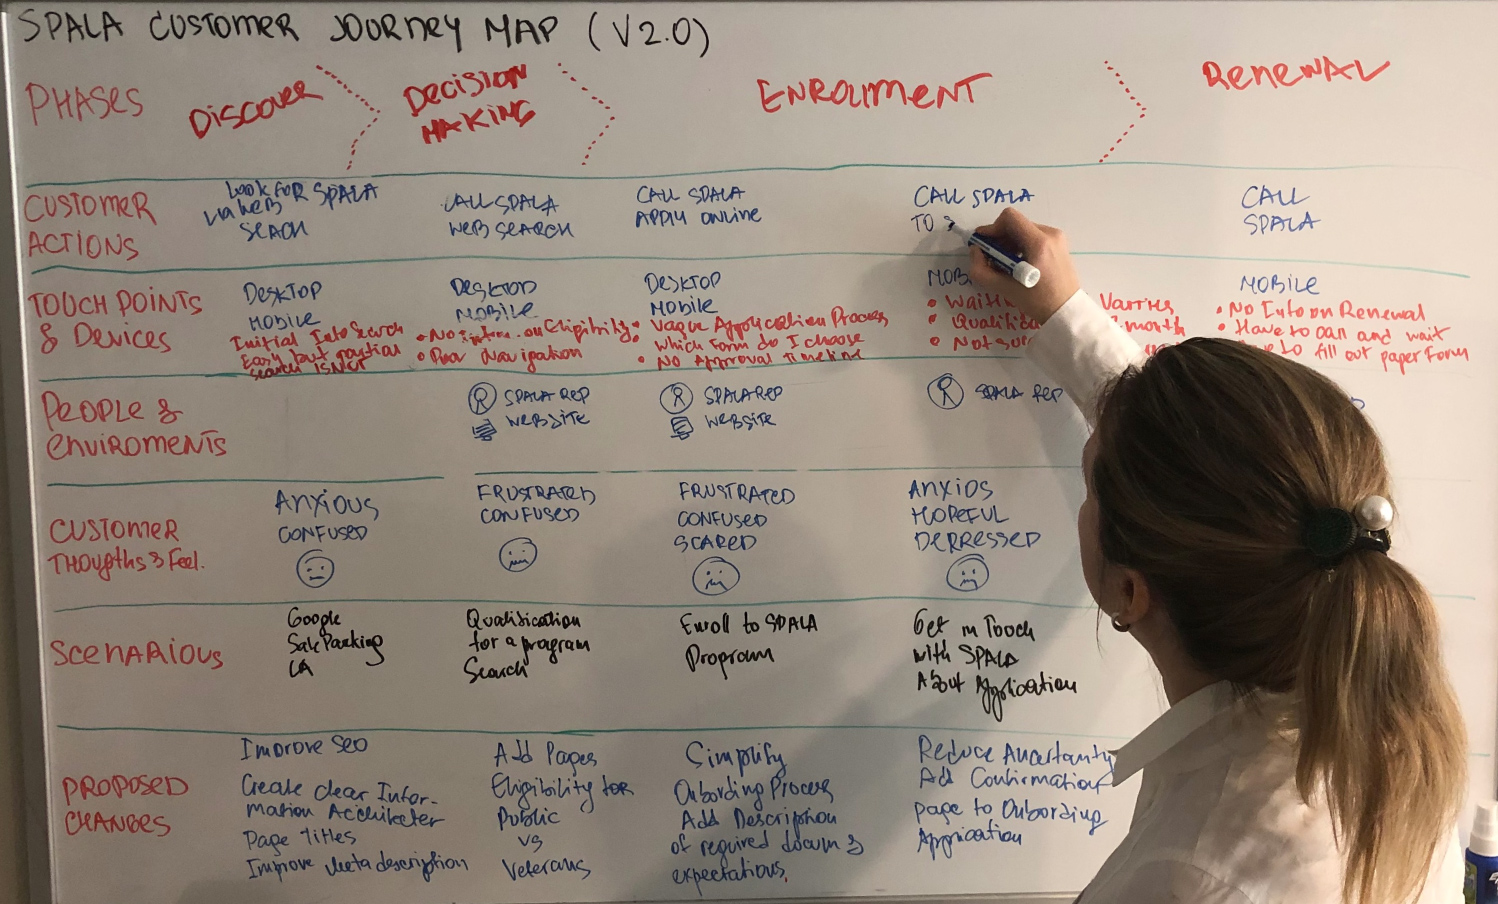 SPALA CUSTOMER JOURNEY MAP (V2.0)
PHASES
DISCOVER
DECISION
MAKING
ENROLMENT
RENEWAL
CUSTOMER
ACTIONS
LOOK FOR SPALA
VIA WEB
SEACH
CALL SPALA
WEB SEARCH
CALL SPALA
APPLY ONLINE
CALL SPALA
TO
CALL
SPALA
TOUCH POINTS
& Devices
DESKTOP
MOBILE
Initial Info Search
Easy but partial
search is not
DESKTOP
MOBILE
• No inform. on Eligibility
• Poor Navigation
DESKTOP
MOBILE
• Vague Application Process
• Which Form do I choose
• No Approval Timeline
• Varries
month
MOBILE
• No Info on Renewal
• Have to call and wait
to fill out paper Form
PEOPLE &
enviroments
R SPALA REP
WEBSITE
R SPALA REP
WEBSITE
R SPALA REP
CUSTOMER
THOUGTHS & Feel.
ANXIOUS
CONFUSED
FRUSTRATED
CONFUSED
FRUSTRATED
CONFUSED
SCARED
ANXIOS
HOPEFUL
DEPRESSED
SCENARIOUS
Google
Safe Parking
LA
Qualification
for a program
Search
Enroll to SPALA
Program
Get in Touch
with SPALA
About Application
PROPOSED
CHANGES
Improve SEO
Create clear Infor-
mation Acchiketer
Page Titles
Improve Meta description
Add Pages
Eligibility for
Public
vs
Veterans
Simplify
Onbording Process
Add Description
of required docum &
expectations.
Reduce Ancertanty
Add Confirmation
page to Onbording
Application